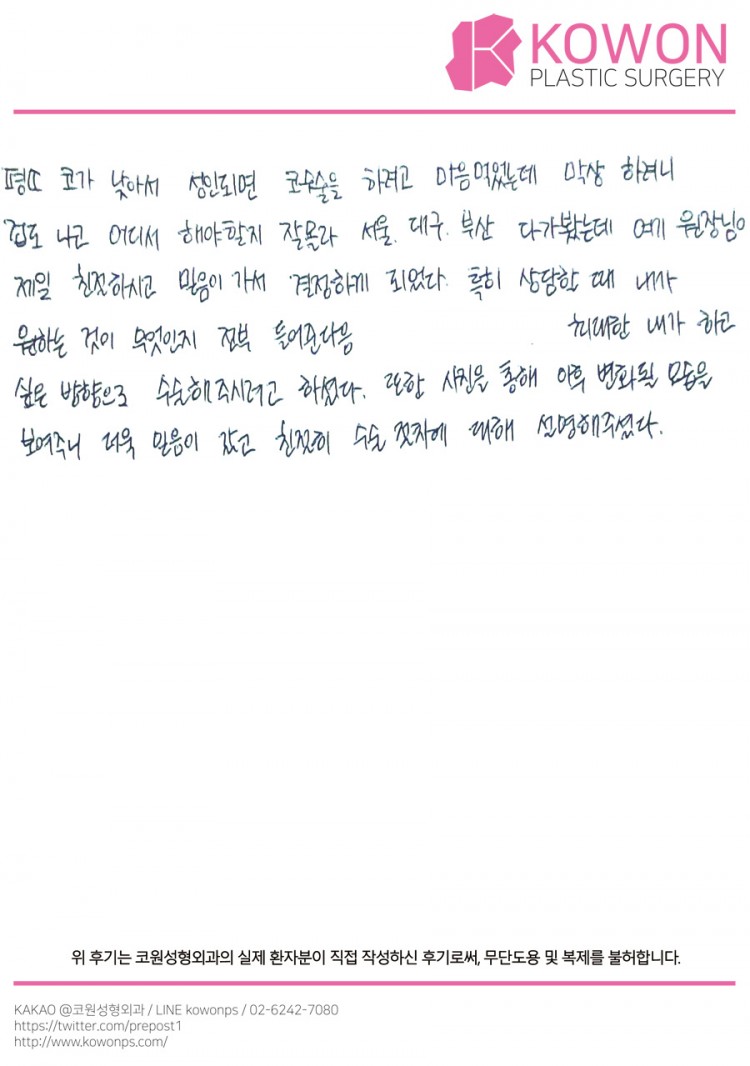 KOWON
PLASTIC SURGERY
평소 코가 낮아서 성인되면 코수술을 하려고 마음먹었는데 막상 하려니
겁도 나고 어디서 해야할지 잘몰라 서울, 대구, 부산 다가봤는데 여기 원장님이
제일 친절하시고 믿음이가서 결정하게 되었다. 특히 상담할 때 내가
원하는 것이 무엇인지 전부 들어준다음 최대한 내가 하고
싶은 방향으로 수술해주시려고 하셨다. 또한 사진을 통해 이후 변화될 모습을
보여주니 더욱 믿음이 갔고 친절히 수술 절차에 대해 설명해주셨다.
위 후기는 코원성형외과의 실제 환자분이 직접 작성하신 후기로써, 무단도용 및 복제를 불허합니다.
KAKAO @코원성형외과 / LINE kowonps / 02-6242-7080
https://twitter.com/prepost1
http://www.kowonps.com/